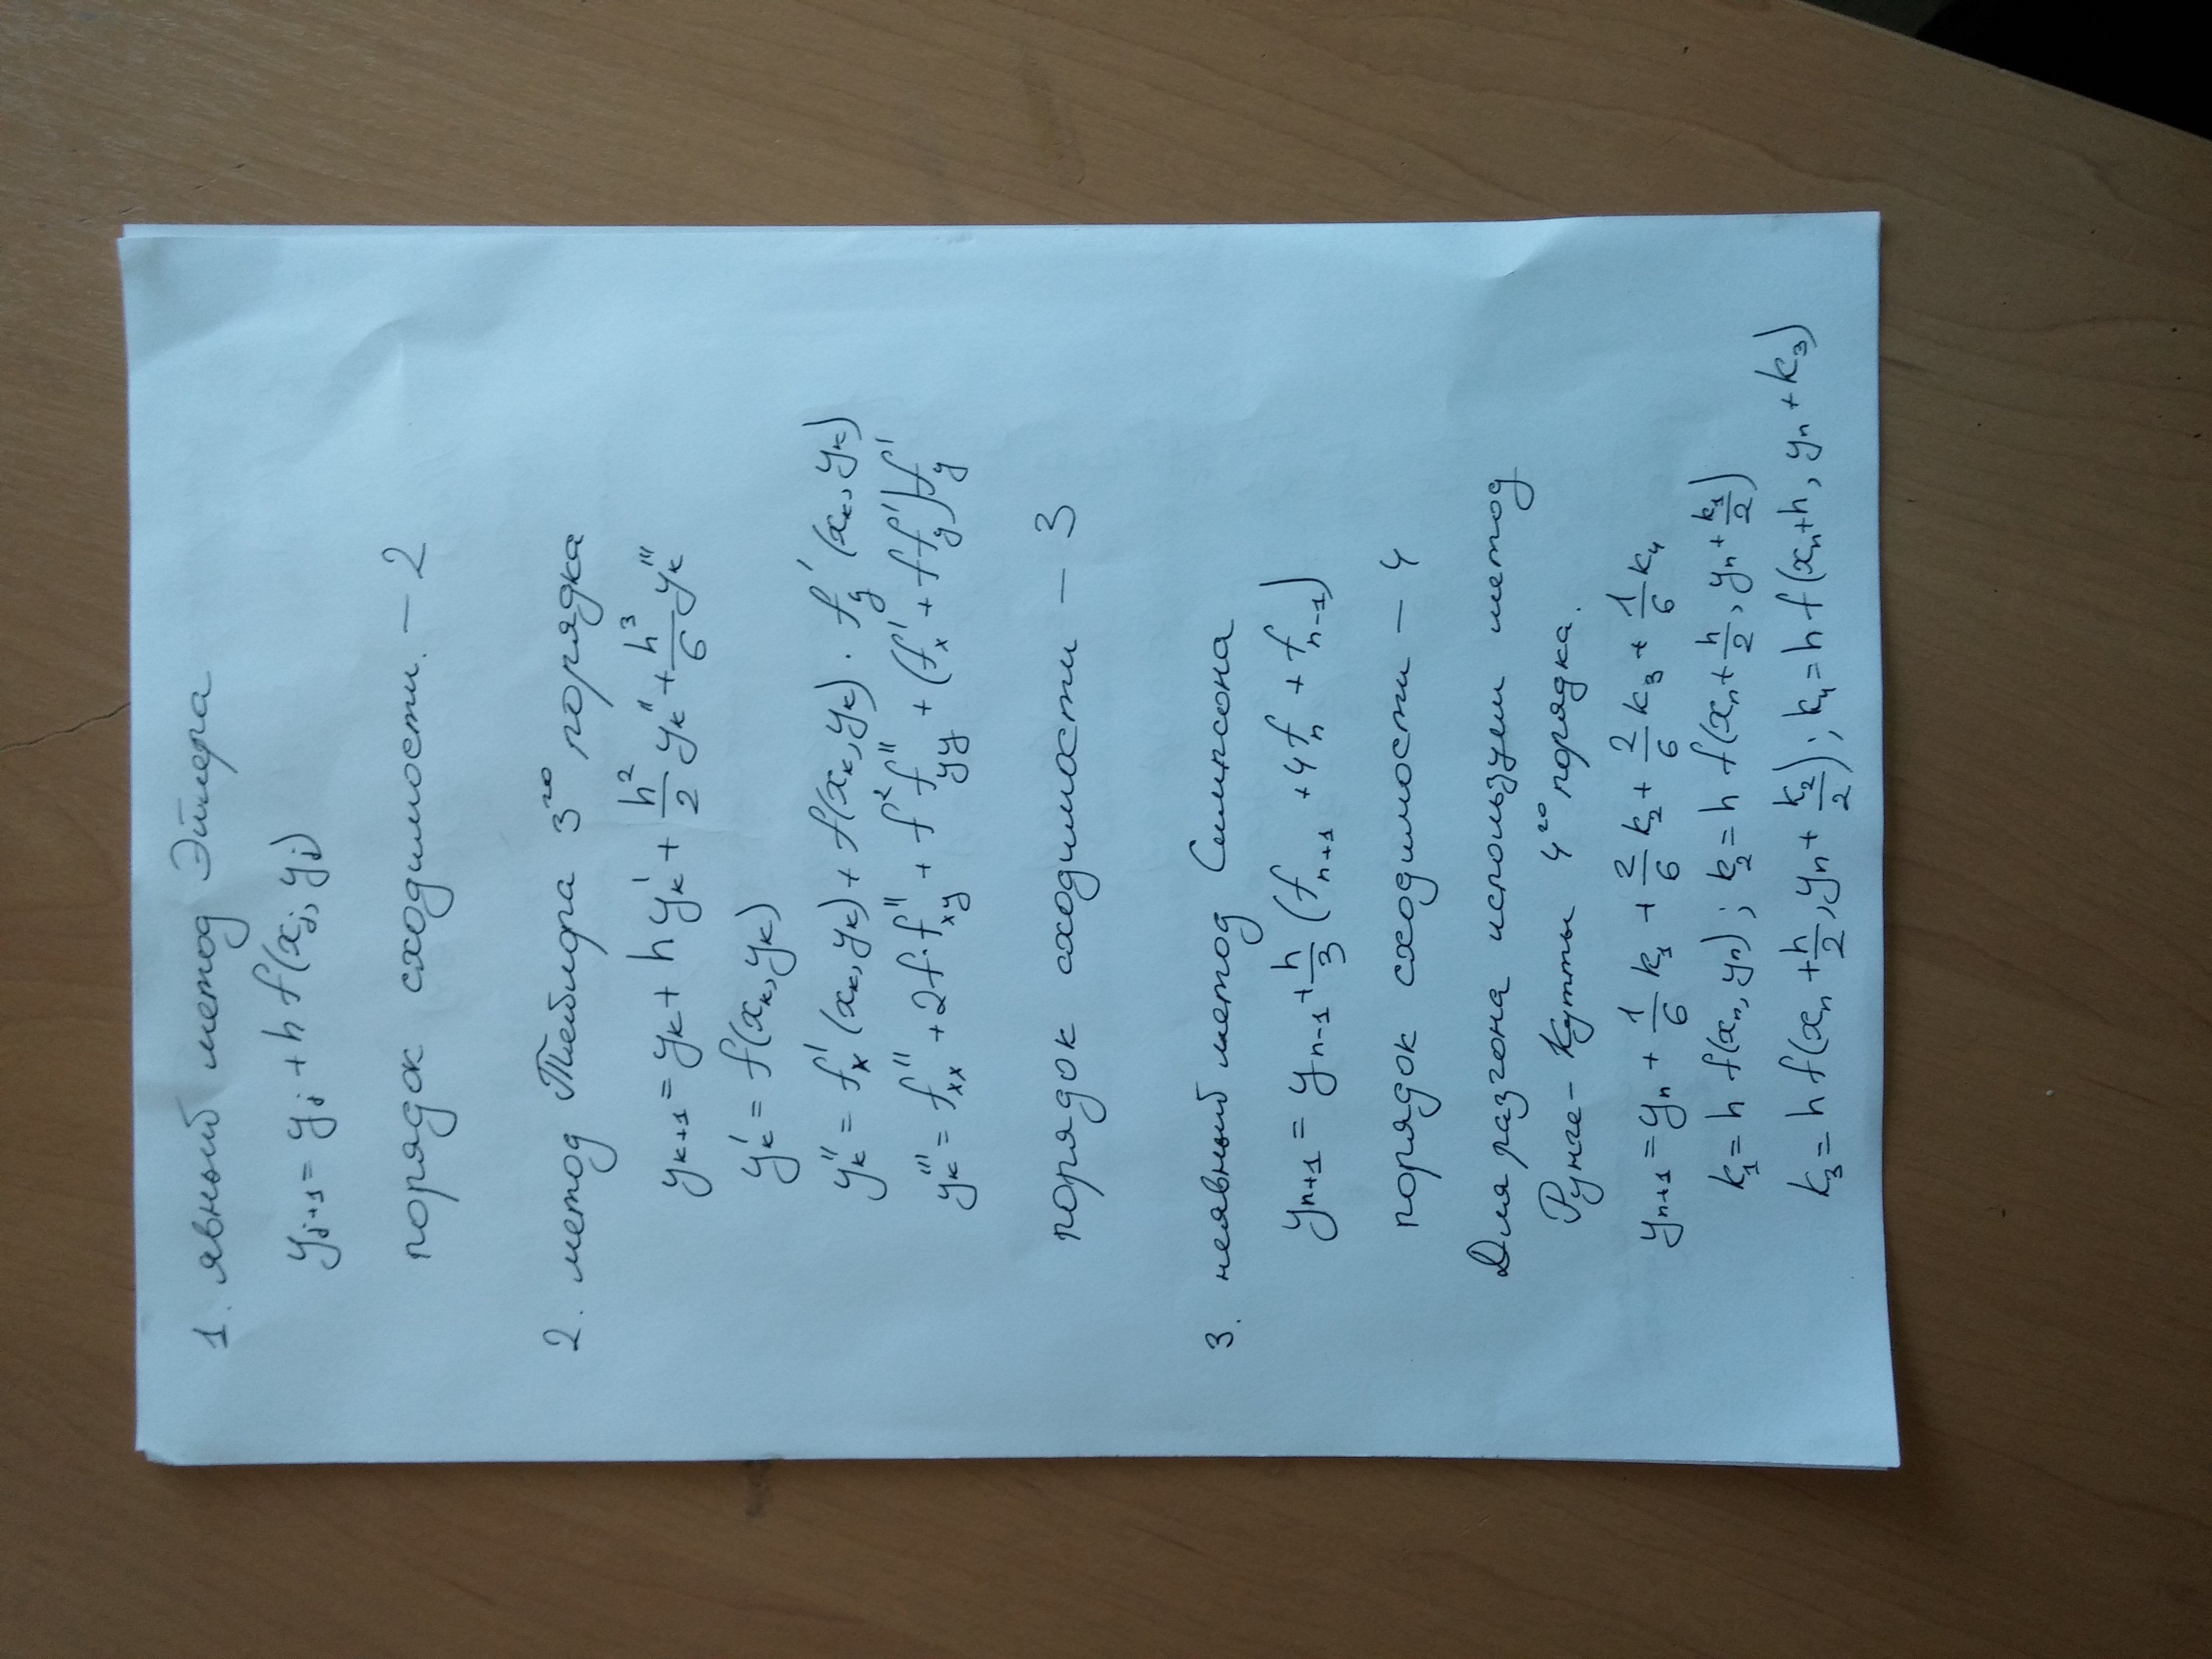 1. явный метод Эйлера
y_{j+1} = y_j + h f(x_j, y_j)
порядок сходимости. – 2
2. метод Тейлора 3^{го} порядка
y_{k+1} = y_k + h y_k' + \frac{h^2}{2} y_k'' + \frac{h^3}{6} y_k'''
y_k' = f(x_k, y_k)
y_k'' = f_x'(x_k, y_k) + f(x_k, y_k) · f_y'(x_k, y_k)
y_k''' = f_{xx}'' + 2f·f_{xy}'' + f^2 f_{yy}'' + (f_x' + f f_y') f_y'
порядок сходимости – 3
3. неявный метод Симпсона
y_{n+1} = y_{n-1} + \frac{h}{3} (f_{n+1} + 4f_n + f_{n-1})
порядок сходимости – 4
Для разгона используем метод
Рунге-Кутты 4^{го} порядка.
y_{n+1} = y_n + \frac{1}{6} k_1 + \frac{2}{6} k_2 + \frac{2}{6} k_3 + \frac{1}{6} k_4
k_1 = h f(x_n, y_n); k_2 = h f(x_n + \frac{h}{2}, y_n + \frac{k_1}{2})
k_3 = h f(x_n + \frac{h}{2}, y_n + \frac{k_2}{2}); k_4 = h f(x_n + h, y_n + k_3)